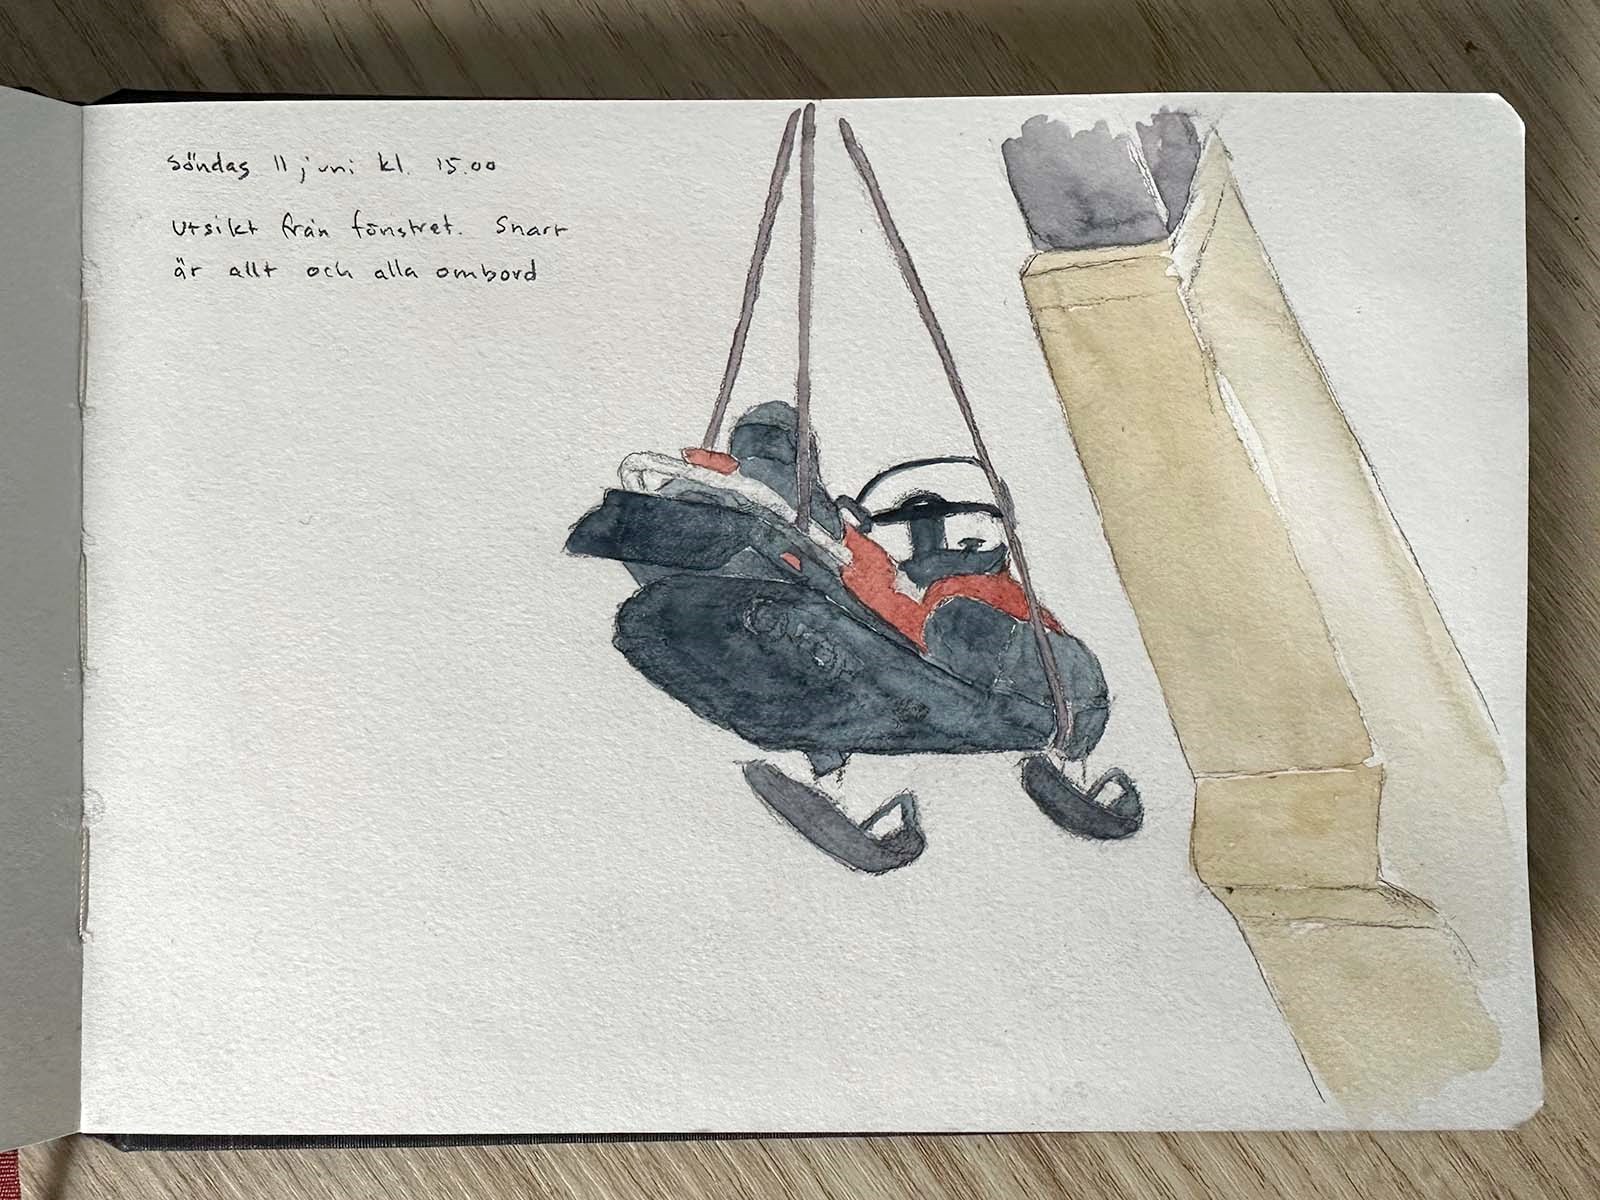 Söndag 11 juni kl. 15.00
Utsikt från fönstret. Snart
är allt och alla ombord